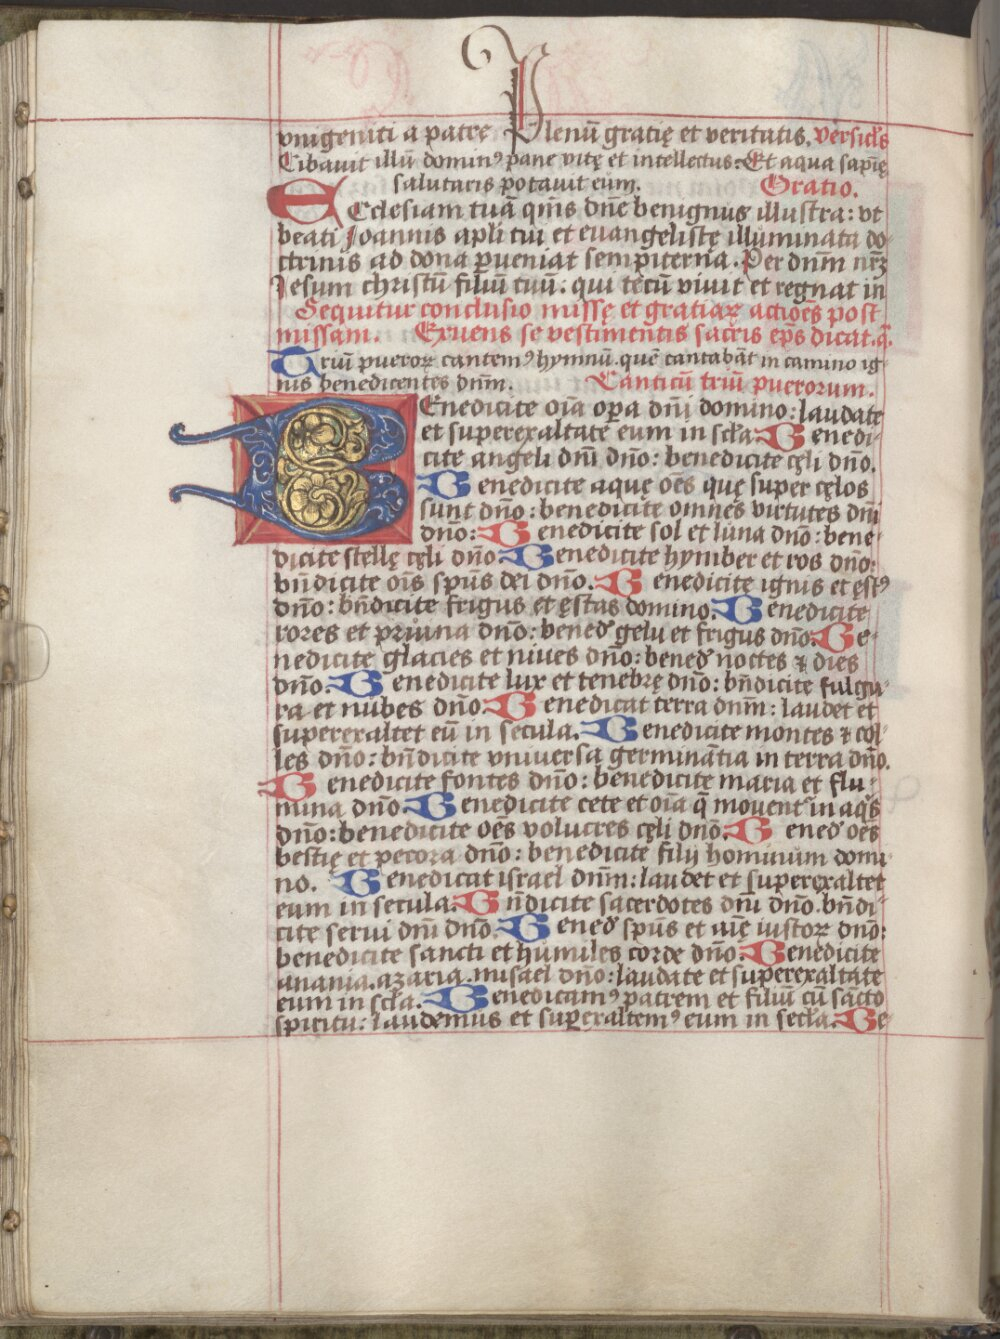 vnigeniti a patre Plenū gratię et veritatis. Versic̄ls
Cibauit illū dominꝰ pane vitę et intellectus. Et aqua sapiē
salutaris potauit eum. Oratio.
ECclesiam tuā qm̄s dn̄e benignus illustra: vt
beati Joannis apl̄i tui et euangelistę illuminata do-
ctrinis ad dona ꝑueniat sempiterna. Per dnm̄ nrꝫ
Jesum christū filiū tuū. qui tecū viuit et regnat in
Sequitur conclusio missę et gratiaꝝ actiōes post
missam. Exuens se vestimentis sacris ep̄s dicat. a͞.
Triū pueroꝝ cantemꝰ hymnū. quē cantabāt in camino ig-
nis benedicentes dnm̄. Canticū triū puerorum.
BEnedicite oīa opa dn̄i domino: laudate
et superexaltate eum in scl̄a. Benedi-
cite angeli dn̄i dn̄o: benedicite cęli dn̄o.
Benedicite aquę oēs quę super cęlos
sunt dn̄o: benedicite omnes virtutes dn̄i
dn̄o: Benedicite sol et luna dn̄o: bene-
dicite stellę cęli dn̄o Benedicite hymber et ros dn̄o:
bn̄dicite oīs sp̄us dei dn̄o. Benedicite ignis et ęstꝰ
dn̄o: bn̄dicite frigus et ęstas domino. Benedicite
rores et pruina dn̄o: bened̄ gelu et frigus dn̄o. Be-
nedicite glacies et niues dn̄o: bened̄ noctes ⁊ dies
dn̄o. Benedicite lux et tenebrę dn̄o: bn̄dicite fulgu-
ra et nubes dn̄o. Benedicat terra dnm̄: laudet et
superexaltet eū in secula. Benedicite montes ⁊ col-
les dn̄o: bn̄dicite vniuersa germinātia in terra dn̄o.
Benedicite fontes dn̄o: benedicite maria et flu-
mina dn̄o. Benedicite cete et oīa q̄ mouent̄ in aq̄s
dn̄o: benedicite oēs volucres cęli dn̄o. Bened̄ oēs
bestię et pecora dn̄o: benedicite filij hominum domi-
no. Benedicat israel dnm̄: laudet et superexaltet
eum in secula. Bn̄dicite sacerdotes dn̄i dn̄o. bn̄di-
cite serui dn̄i dn̄o. Bened̄ sp̄us et aīę iustoꝝ dn̄o:
benedicite sancti et humiles corde dn̄o. Benedicite
anania. azaria. misael dn̄o: laudate et superexaltate
eum in scl̄a. Benedicamꝰ patrem et filiū cū sācto
spiritu: laudemus et superaltemꝰ eum in secl̄a. Be-